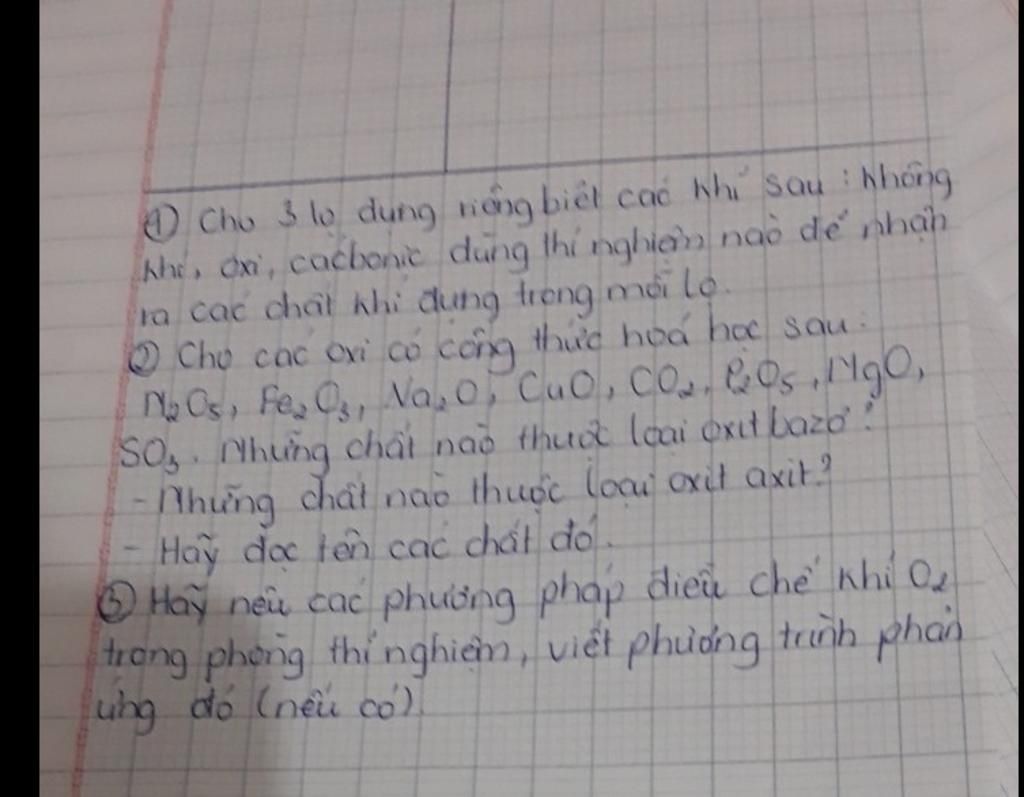 ① Cho 3 lọ đựng riêng biệt các khí sau: không
khí, oxi, cacbonic dùng thí nghiệm nào để nhận
ra các chất khí đựng trong mỗi lọ.
② Cho các oxi có công thức hoá học sau:
N₂O₅, Fe₂O₃, Na₂O, CuO, CO₂, P₂O₅, MgO,
SO₃. Những chất nào thuộc loại oxit bazơ?
- Những chất nào thuộc loại oxit axit?
- Hãy đọc tên các chất đó.
③ Hãy nêu các phương pháp điều chế khí O₂
trong phòng thí nghiệm, viết phương trình phản
ứng đó (nếu có).